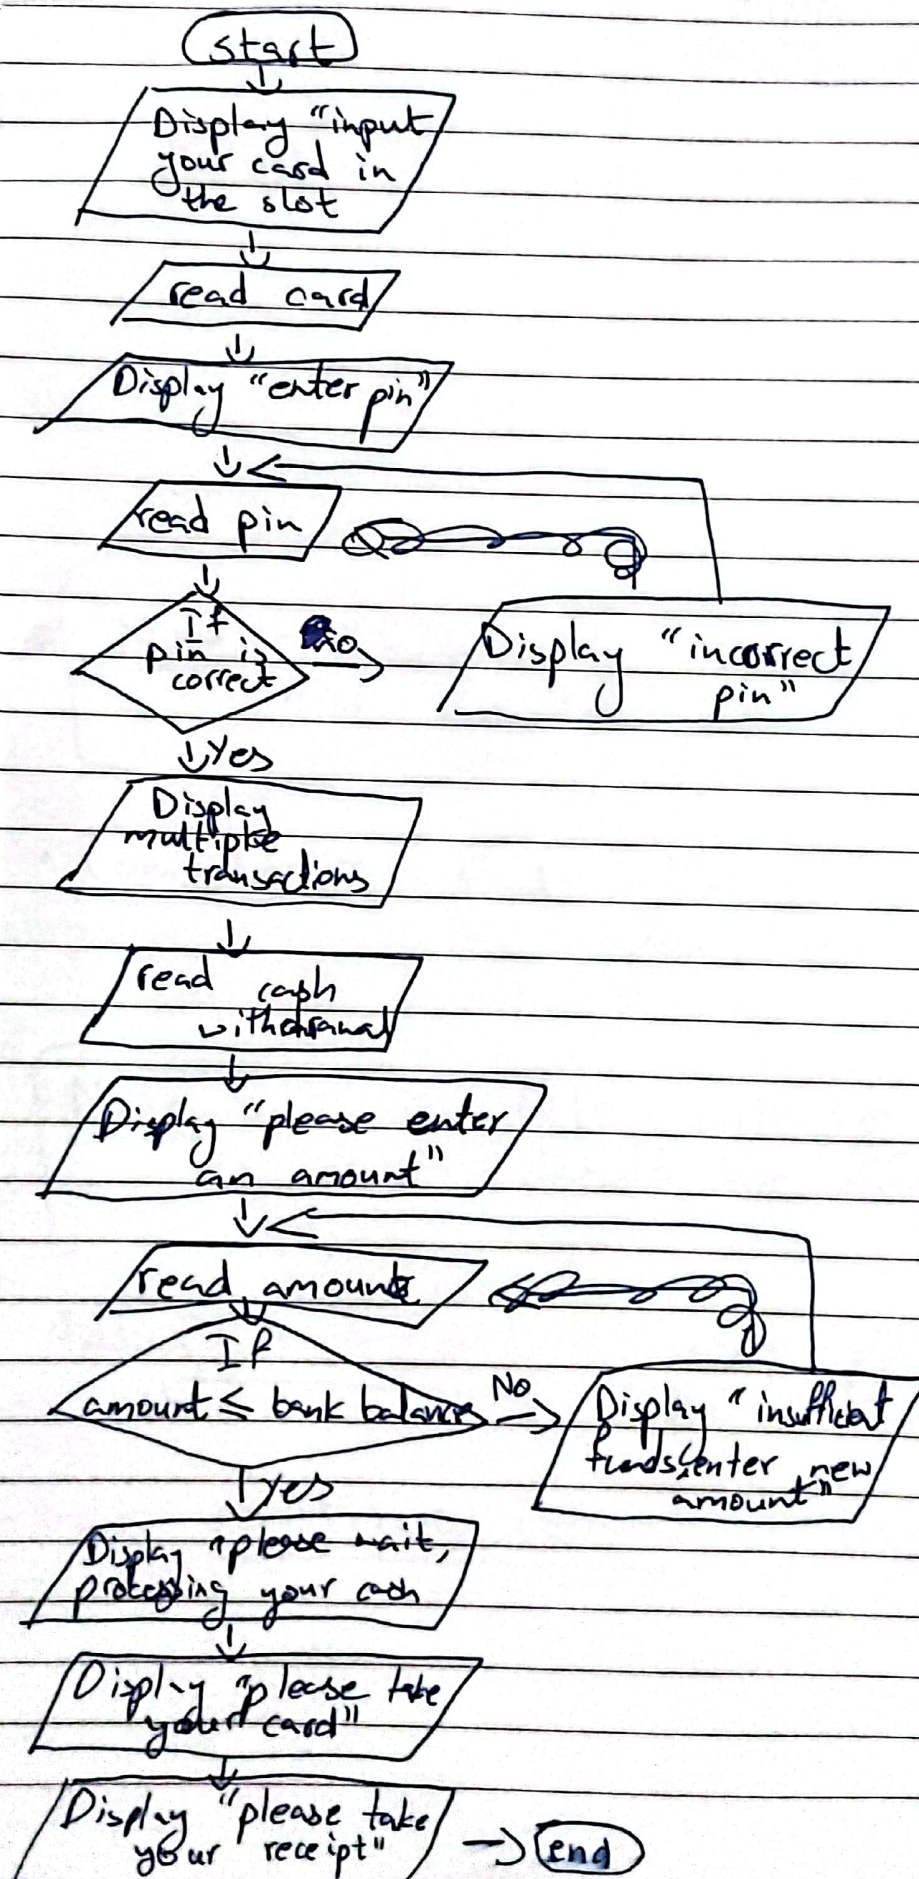 start
Display "input
your card in
the slot
read card
Display "enter pin"
read pin
If
pin is
correct
no
Display "incorrect
pin"
Yes
Display
multiple
transactions
read cash
withdrawal
Display "please enter
an amount"
read amount
If
amount ≤ bank balance
No
Display "insufficient
funds, enter new
amount"
Yes
Display "please wait,
processing your cash
Display "please take
your card"
Display "please take
your receipt"
end